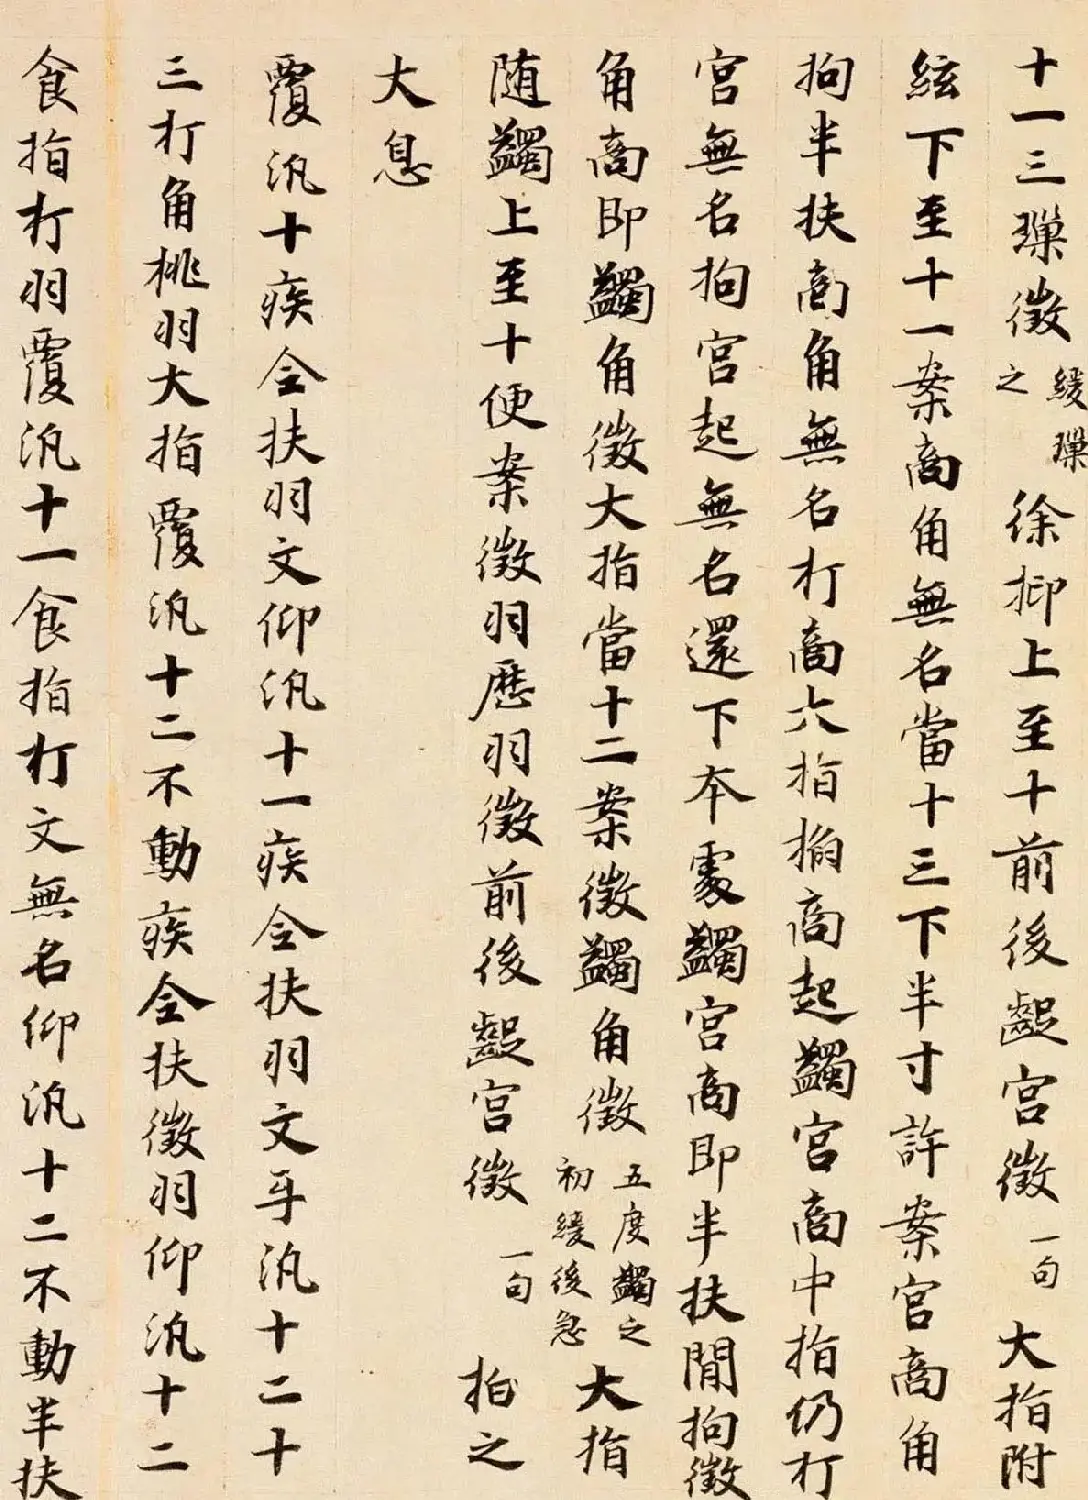 十一三璅徵緩璅之徐抑上至十前後齪宮徵一句大指附
絃下至十一案商角無名當十三下半寸許案宮商角
拘半扶商角無名打商六指搊商起蠲宮商中指仍打
宮無名拘宮起無名還下本處蠲宮商即半扶閒拘徵
角商即蠲角徵大指當十二案徵蠲角徵五度蠲之初緩後急大指
随蠲上至十便案徵羽歷羽徵前後齪宮徵一句拍之
大息
覆汎十疾全扶羽文仰汎十一疾全扶羽文耳汎十二十
三打角桃羽大指覆汎十二不動疾全扶徵羽仰汎十二
食指打羽覆汎十一食指打文無名仰汎十二不動半扶